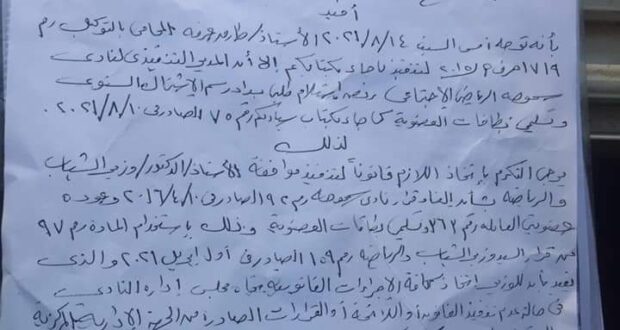 أفيد
بأنه توجه أمس السبت ٢٠٢١/٨/١٤ الأستاذ/ طارق عرفه المحامى بالتوكيل رقم
٧١٩ حرف لتنفيذ ماجاء بكتابكم إلا أن المدير التنفيذى لنادى
سموحه الرياضى الاجتماعى رفض استلام طلب سداد رسم الاشتراك السنوى
وتسلمى بطاقات العضوية كما جاء بكتاب سيادتكم رقم ٧٥ الصادر فى ٢٠٢١/٨/١٠
لذلك
يرجى التكرم بإتخاذ اللازم قانوناً لتنفيذ موافقة الأستاذ الدكتور/ وزير الشباب
والرياضه بشأن إلغاء قرار نادى سموحه رقم ٩٢ الصادر فى ٢٠١٦/٤/١٠ وعوده
عضويتى العامله رقم ٣٦٣ وتسلمى بطاقات العضوية وذلك بإستخدام الماده رقم ٩٧
من قرار السيد وزير الشباب والرياضه رقم ١٥٩ الصادر فى أول ابريل ٢٠٢١ والذى
يفيد بأن للوزير اتخاذ كافة الاجراءات القانونيه تجاه مجلس إدارة النادى
فى حالة عدم تنفيذ القانون أو اللائحة أو القرارات الصادره من الجهة الإدارية المركزية